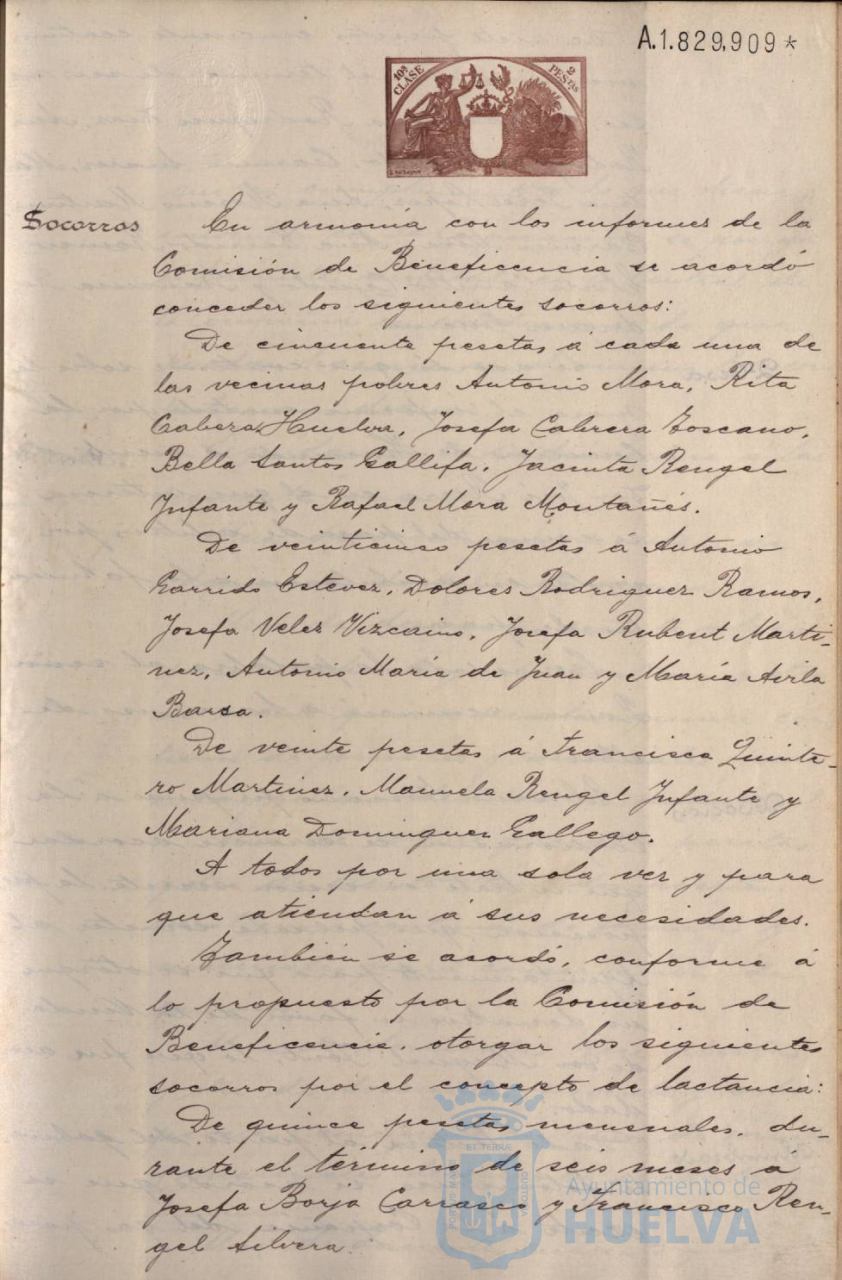 A.1.829,909*
10ª CLASE
2 PESTAS
Socorros
En armonía con los informes de la
Comisión de Beneficencia se acordó
conceder los siguientes socorros:
De cincuenta pesetas á cada una de
las vecinas pobres Antonio Mora, Rita
Huelva, Josefa Cabrera Toscano,
Bella Santos Gallifa, Jacinta Rengel
Infante y Rafael Mora Montañés.
De veinticinco pesetas á Antonio
Garrido Estevez, Dolores Rodriguez Ramos,
Josefa Velez Vizcaino, Josefa Rubent Marti-
nez, Antonio María de Juan y María Avila
De veinte pesetas á Francisca Quinte-
ro Martinez, Manuela Rengel Infante y
Mariana Dominguez Gallego.
A todos por una sola vez y para
que atiendan á sus necesidades.
También se acordó, conforme á
lo propuesto por la Comisión de
Beneficencia, otorgar los siguientes
socorros por el concepto de lactancia:
De quince pesetas mensuales, du-
rante el término de seis meses á
Josefa Borja Carrasco y Francisco Ren-
gel Silvera.
Ayuntamiento de
HUELVA